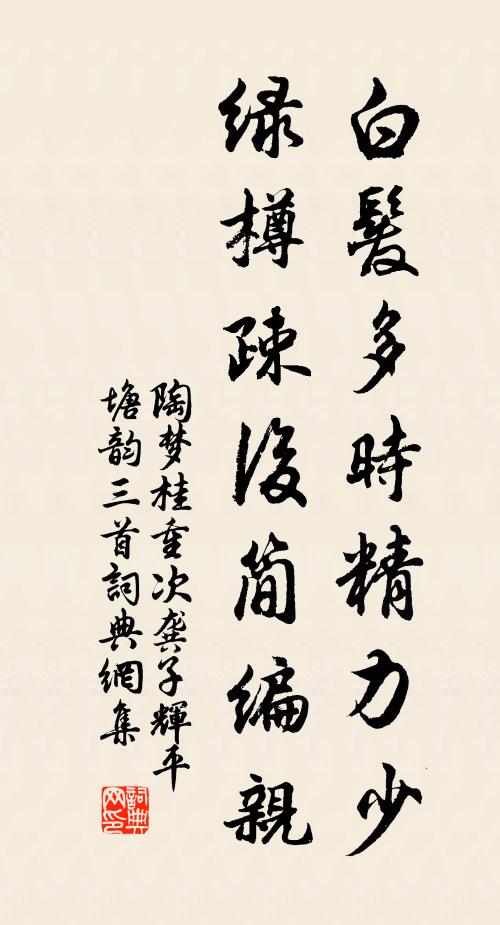 白髮多時精力少
緑樽疎後簡編親
陶梦桂重次龚子輝平
塘韵三首詞典網集
詞典
网印